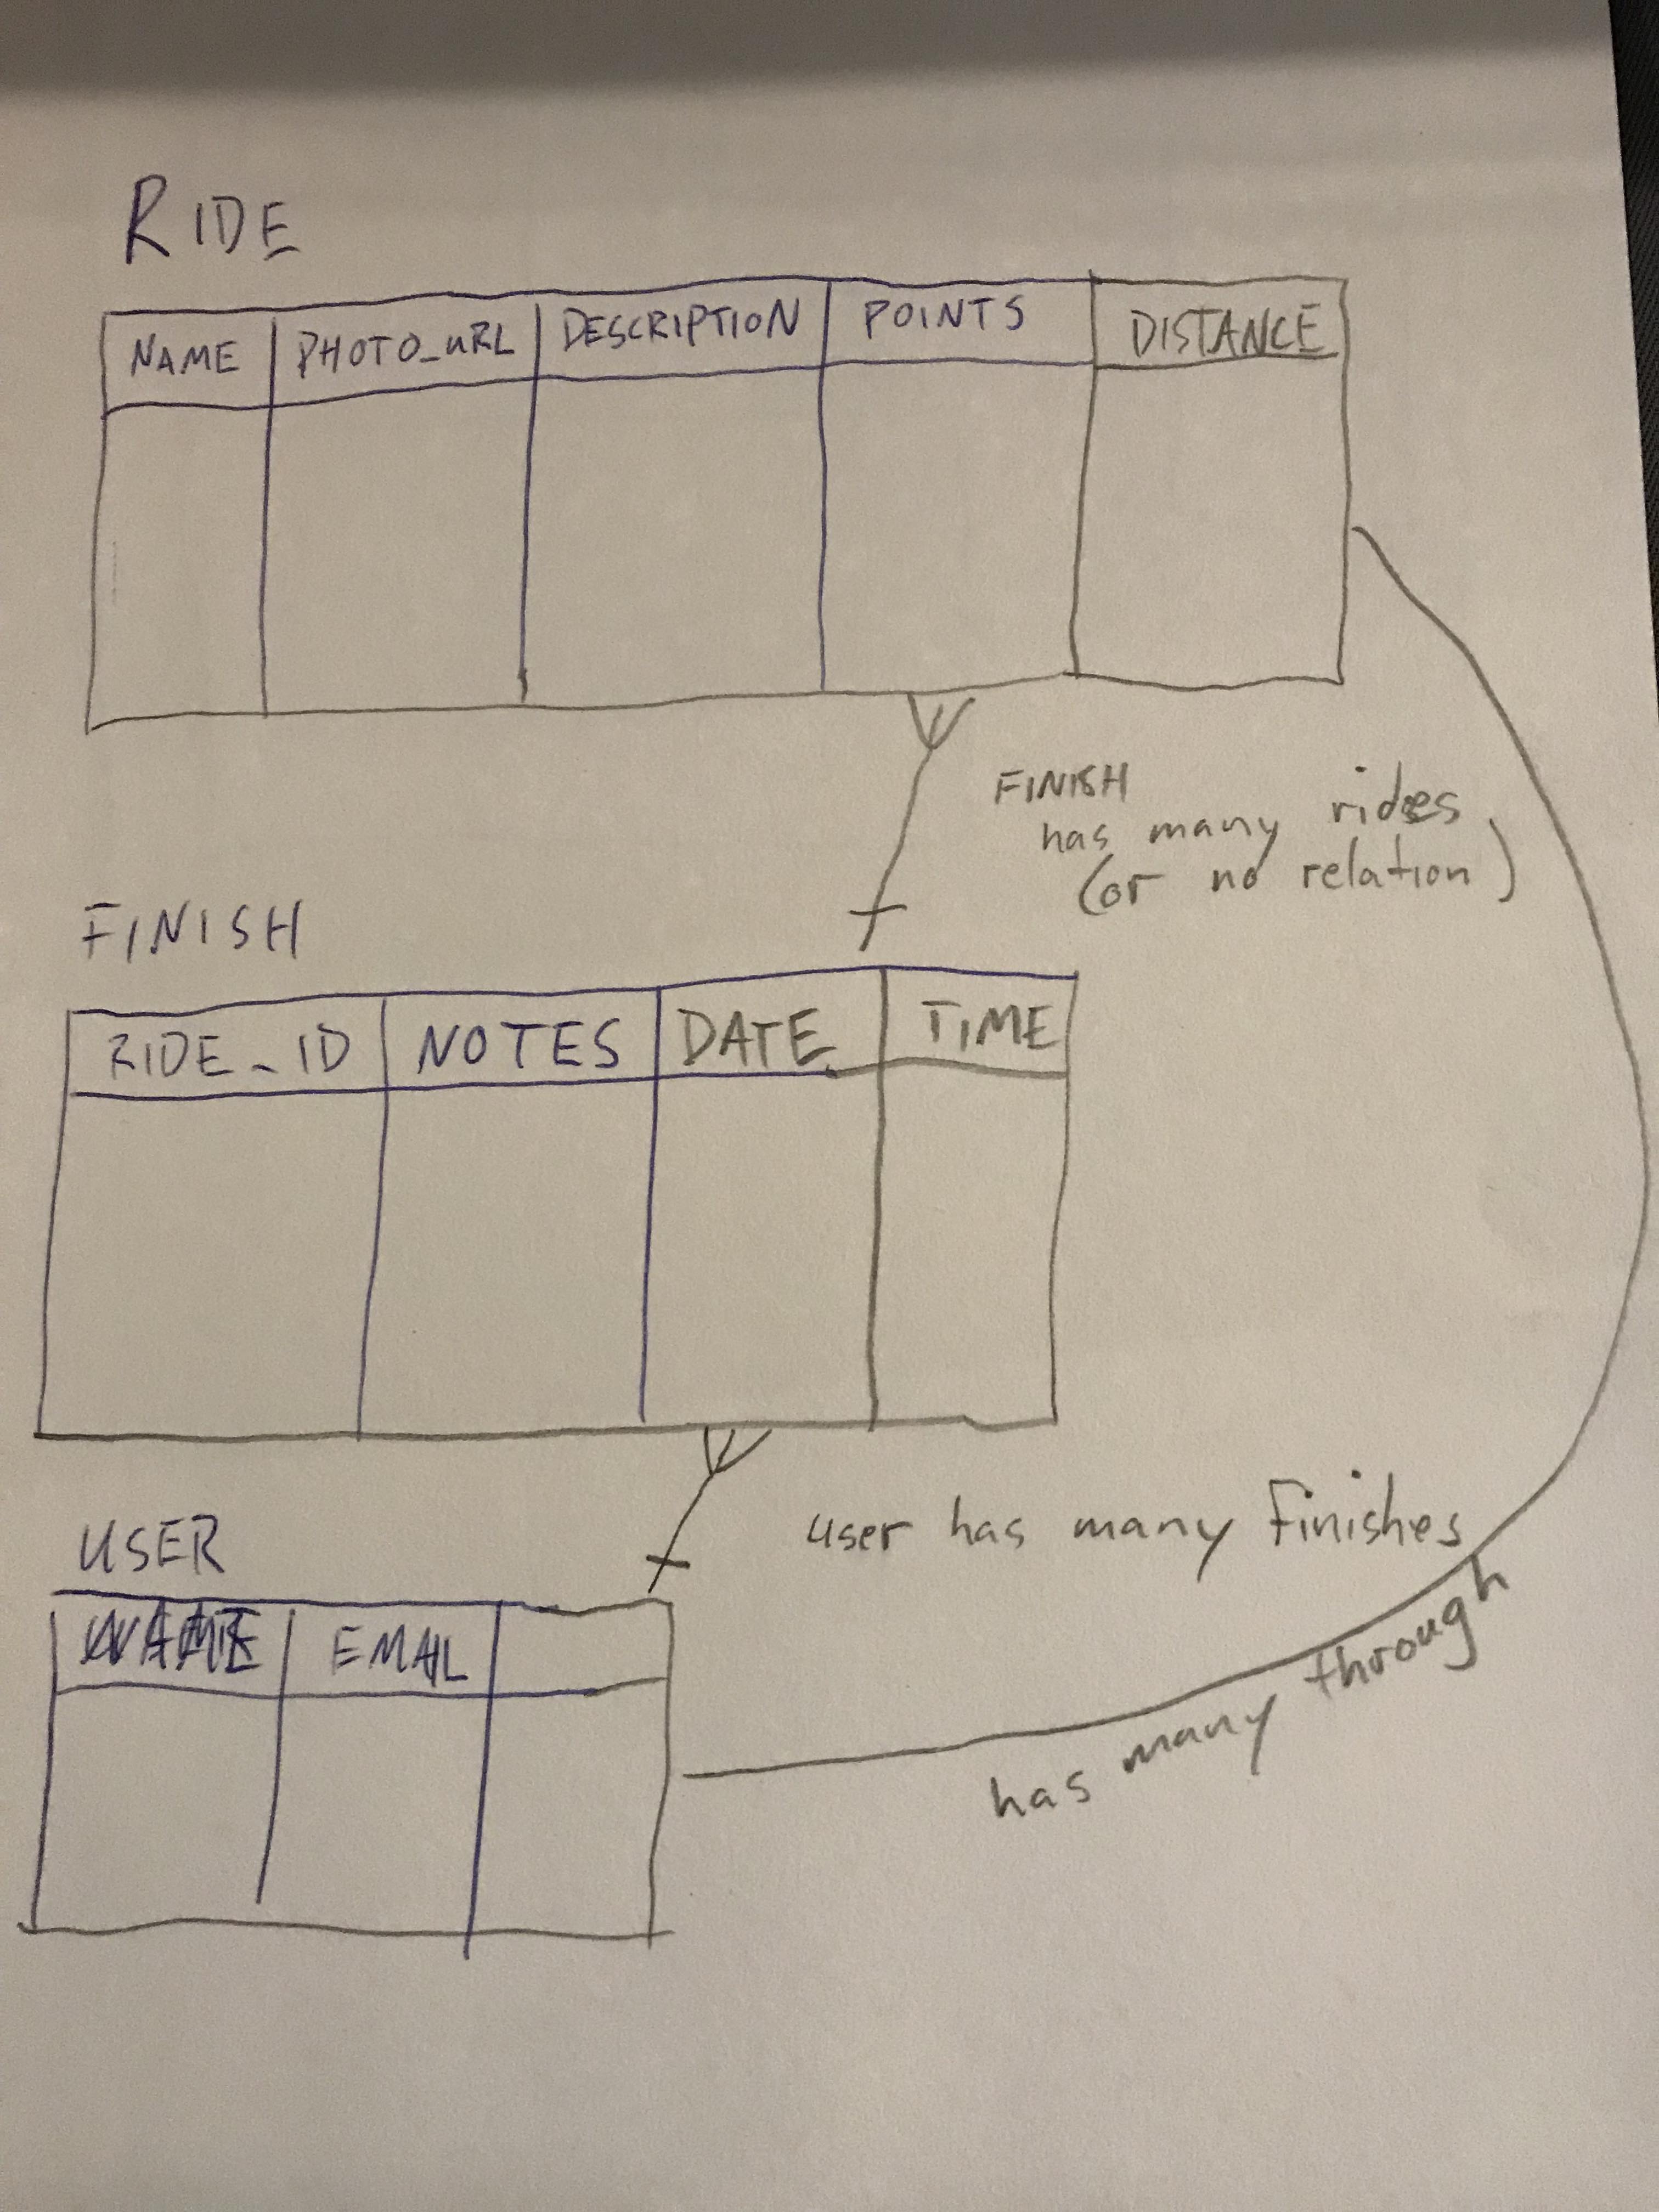 RIDE
NAME PHOTO_URL DESCRIPTION POINTS DISTANCE
FINISH
has many rides
(or no relation)
FINISH
RIDE_ID NOTES DATE TIME
user has many Finishes
USER
NAME EMAIL
has many through